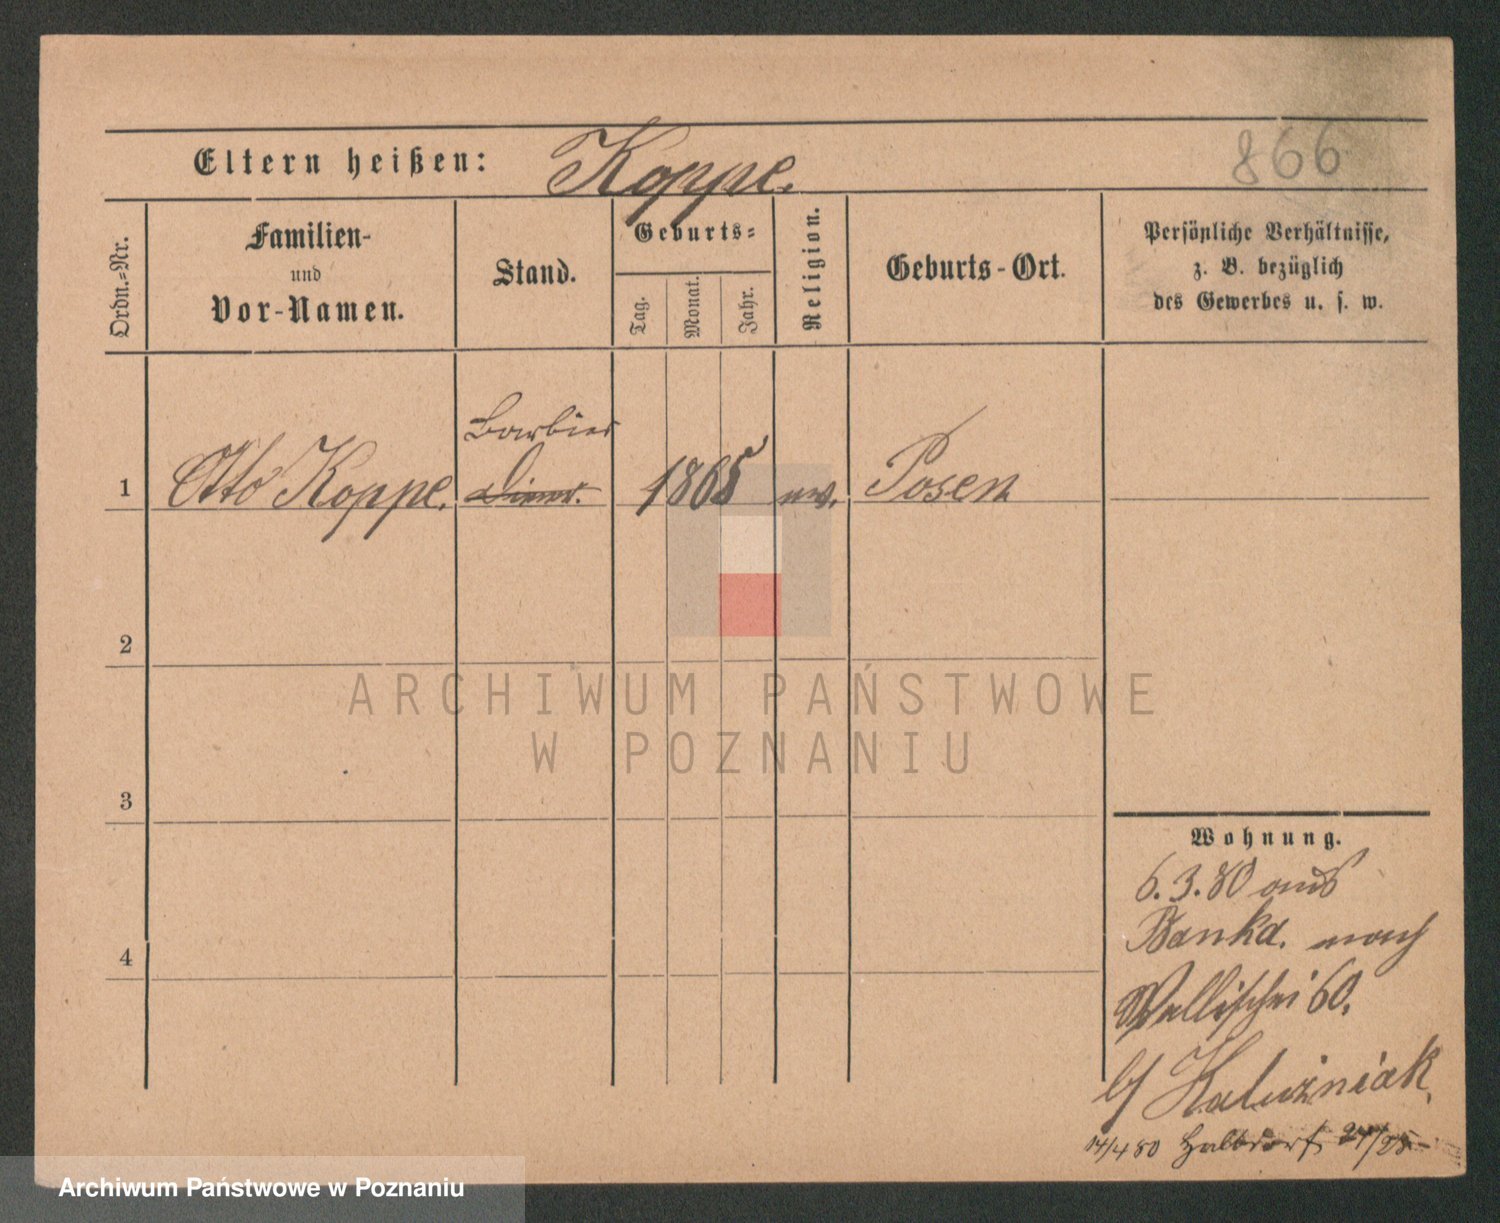 866
Eltern heißen: Koppe.
Ordn.-Nr.
Familien-
und
Vor-Namen.
Stand.
Geburts-
Tag.
Monat.
Jahr.
Religion.
Geburts-Ort.
Persönliche Verhältnisse,
z. B. bezüglich
des Gewerbes u. s. w.
Barbier
1 Otto Koppe. Diener. 1865 ev. Posen
2
3
4
ARCHIWUM PAŃSTWOWE
W POZNANIU
Wohnung.
6.3.80 aus
Bankd. nach
Wallischei 60.
b/ Kaluźniak.
14/4 80 Halbdorf 27/28
Archiwum Państwowe w Poznaniu